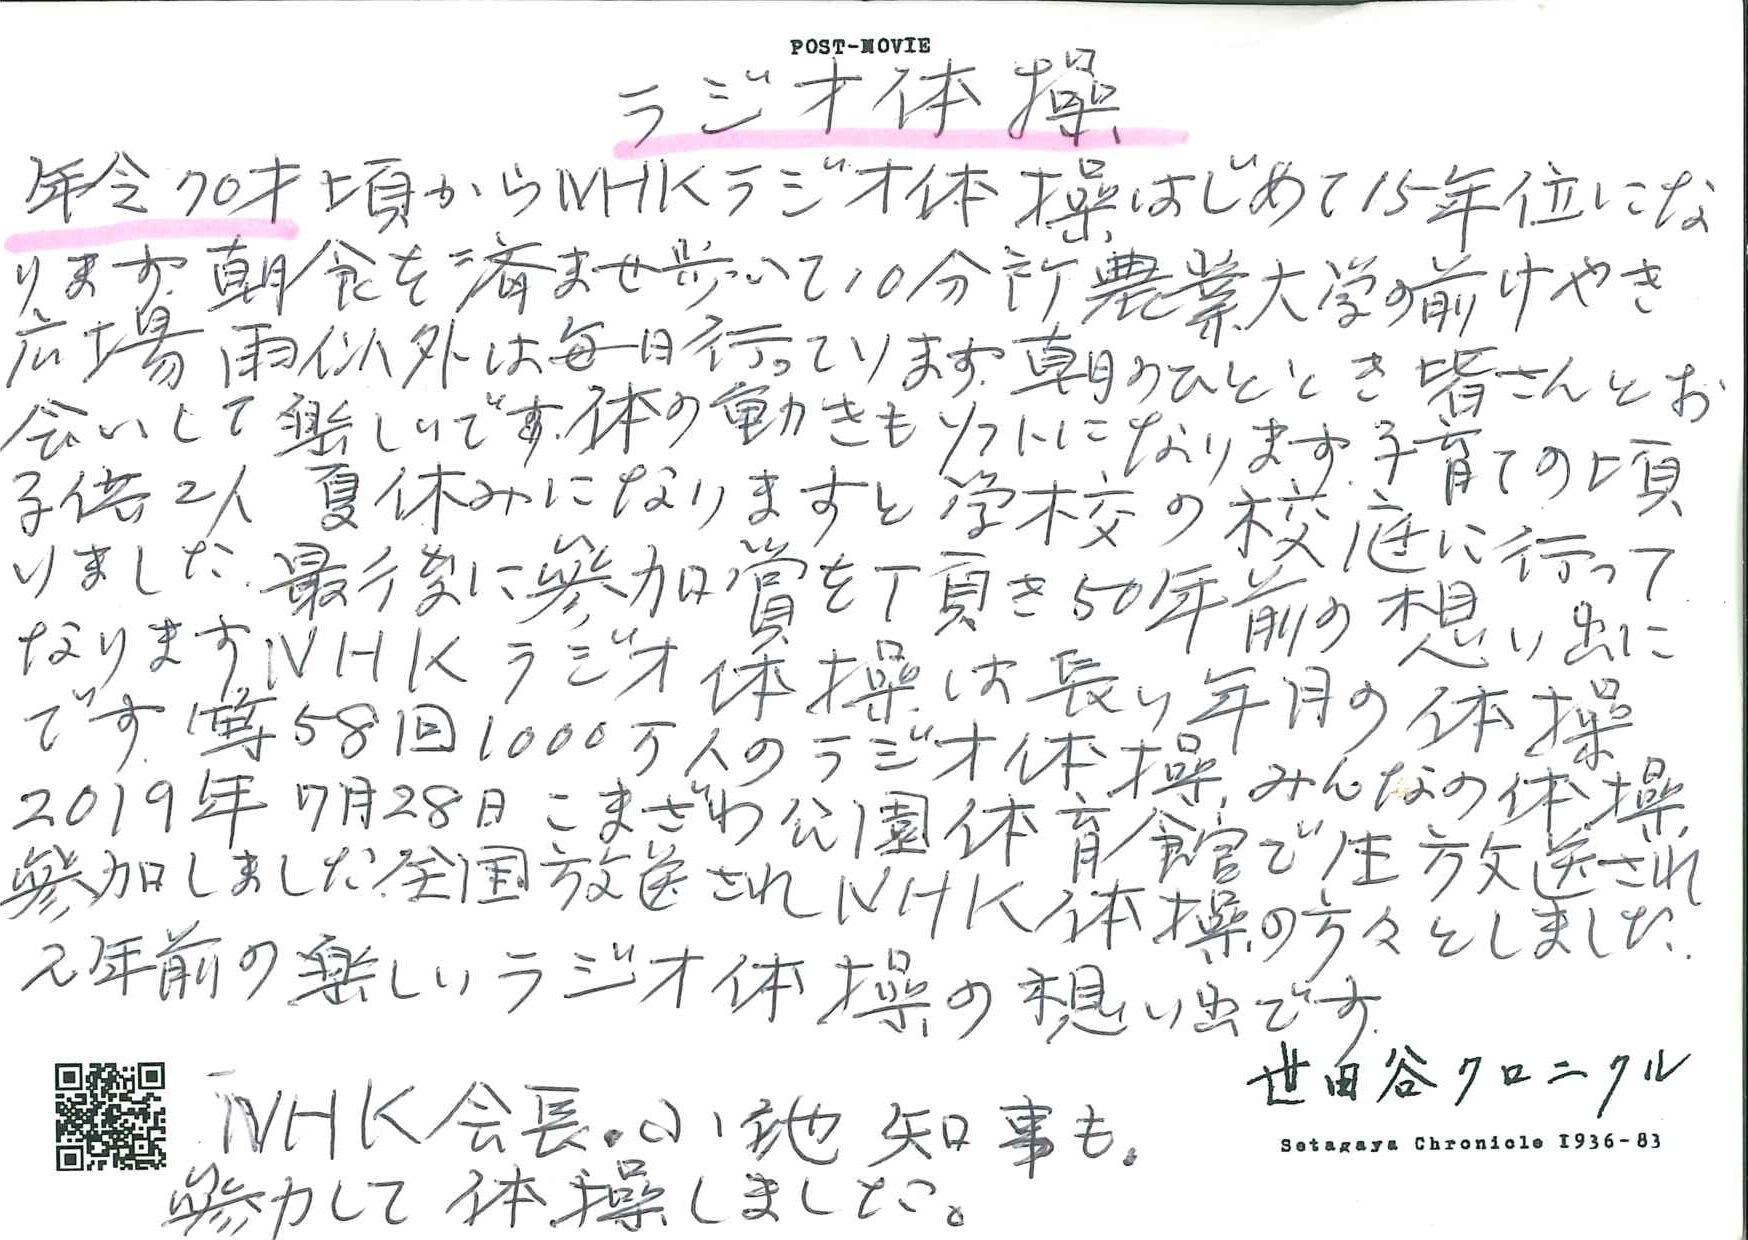 POST-MOVIE
ラジオ体操
年令70才頃からNHKラジオ体操はじめて15年位にな
ります.朝食を済ませ歩いて10分計農業大学の前けやき
広場 雨以外は毎日行っております.朝のひととき皆さんとお
会いして楽しいです.体の動きもソフトになります.子育ての頃
子供2人 夏休みになりますと学校の校庭に行って
りました.最後に参加賞を丁頂き50年前の想い出に
なりますNHKラジオ体操は長い年月の体操
です.第58回1000万人のラジオ体操.みんなの体操.
2019年7月28日こまざわ公園体育館で生放送され
参加しました.全国放送されNHK体操の方々としました.
2年前の楽しいラジオ体操の想い出です.
NHK会長.小池知事も.
参加して体操しました。
世田谷クロニクル
Setagaya Chronicle 1936-83